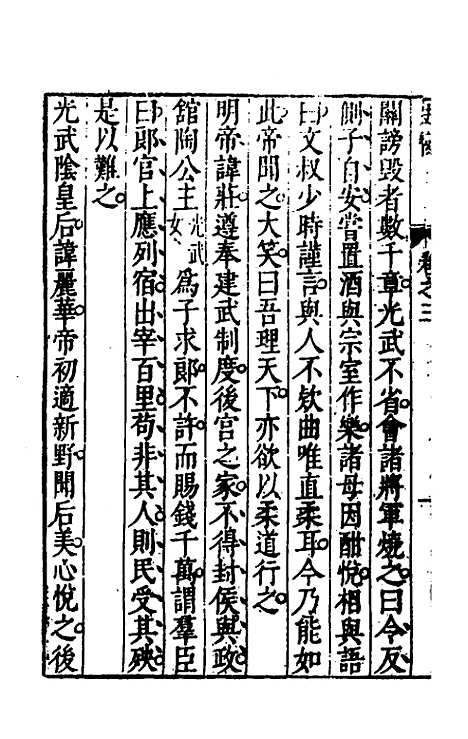 卷之三
關謗毀者數千章光武不省會諸將軍燒之曰令反
側子自安嘗置酒與宗室作樂諸母因酣悅相與語
曰文叔少時謹言與人不欵曲唯直柔耳今乃能如
此帝聞之大笑曰吾理天下亦欲以柔道行之
明帝諱莊遵奉建武制度後宮之家不得封侯與政
館陶公主光武女為子求郎不許而賜錢千萬謂羣臣
曰郎官上應列宿出宰百里苟非其人則民受其殃
是以難之
光武陰皇后諱麗華帝初適新野聞后美心悅之後